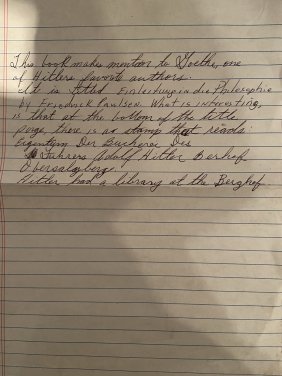 This book makes mention to Goethe, one
of Hitlers favorite authors.
It is titled Einleitung in die Philosophie
by Friedrick Paulsen. What is interesting,
is that at the bottom of the title
page, there is a stamp that reads
Eigentum Der Bucherei Des
Fuhrers Adolf Hitler Berhof
Obersalzberge.
Hitler had a library at the Berghof